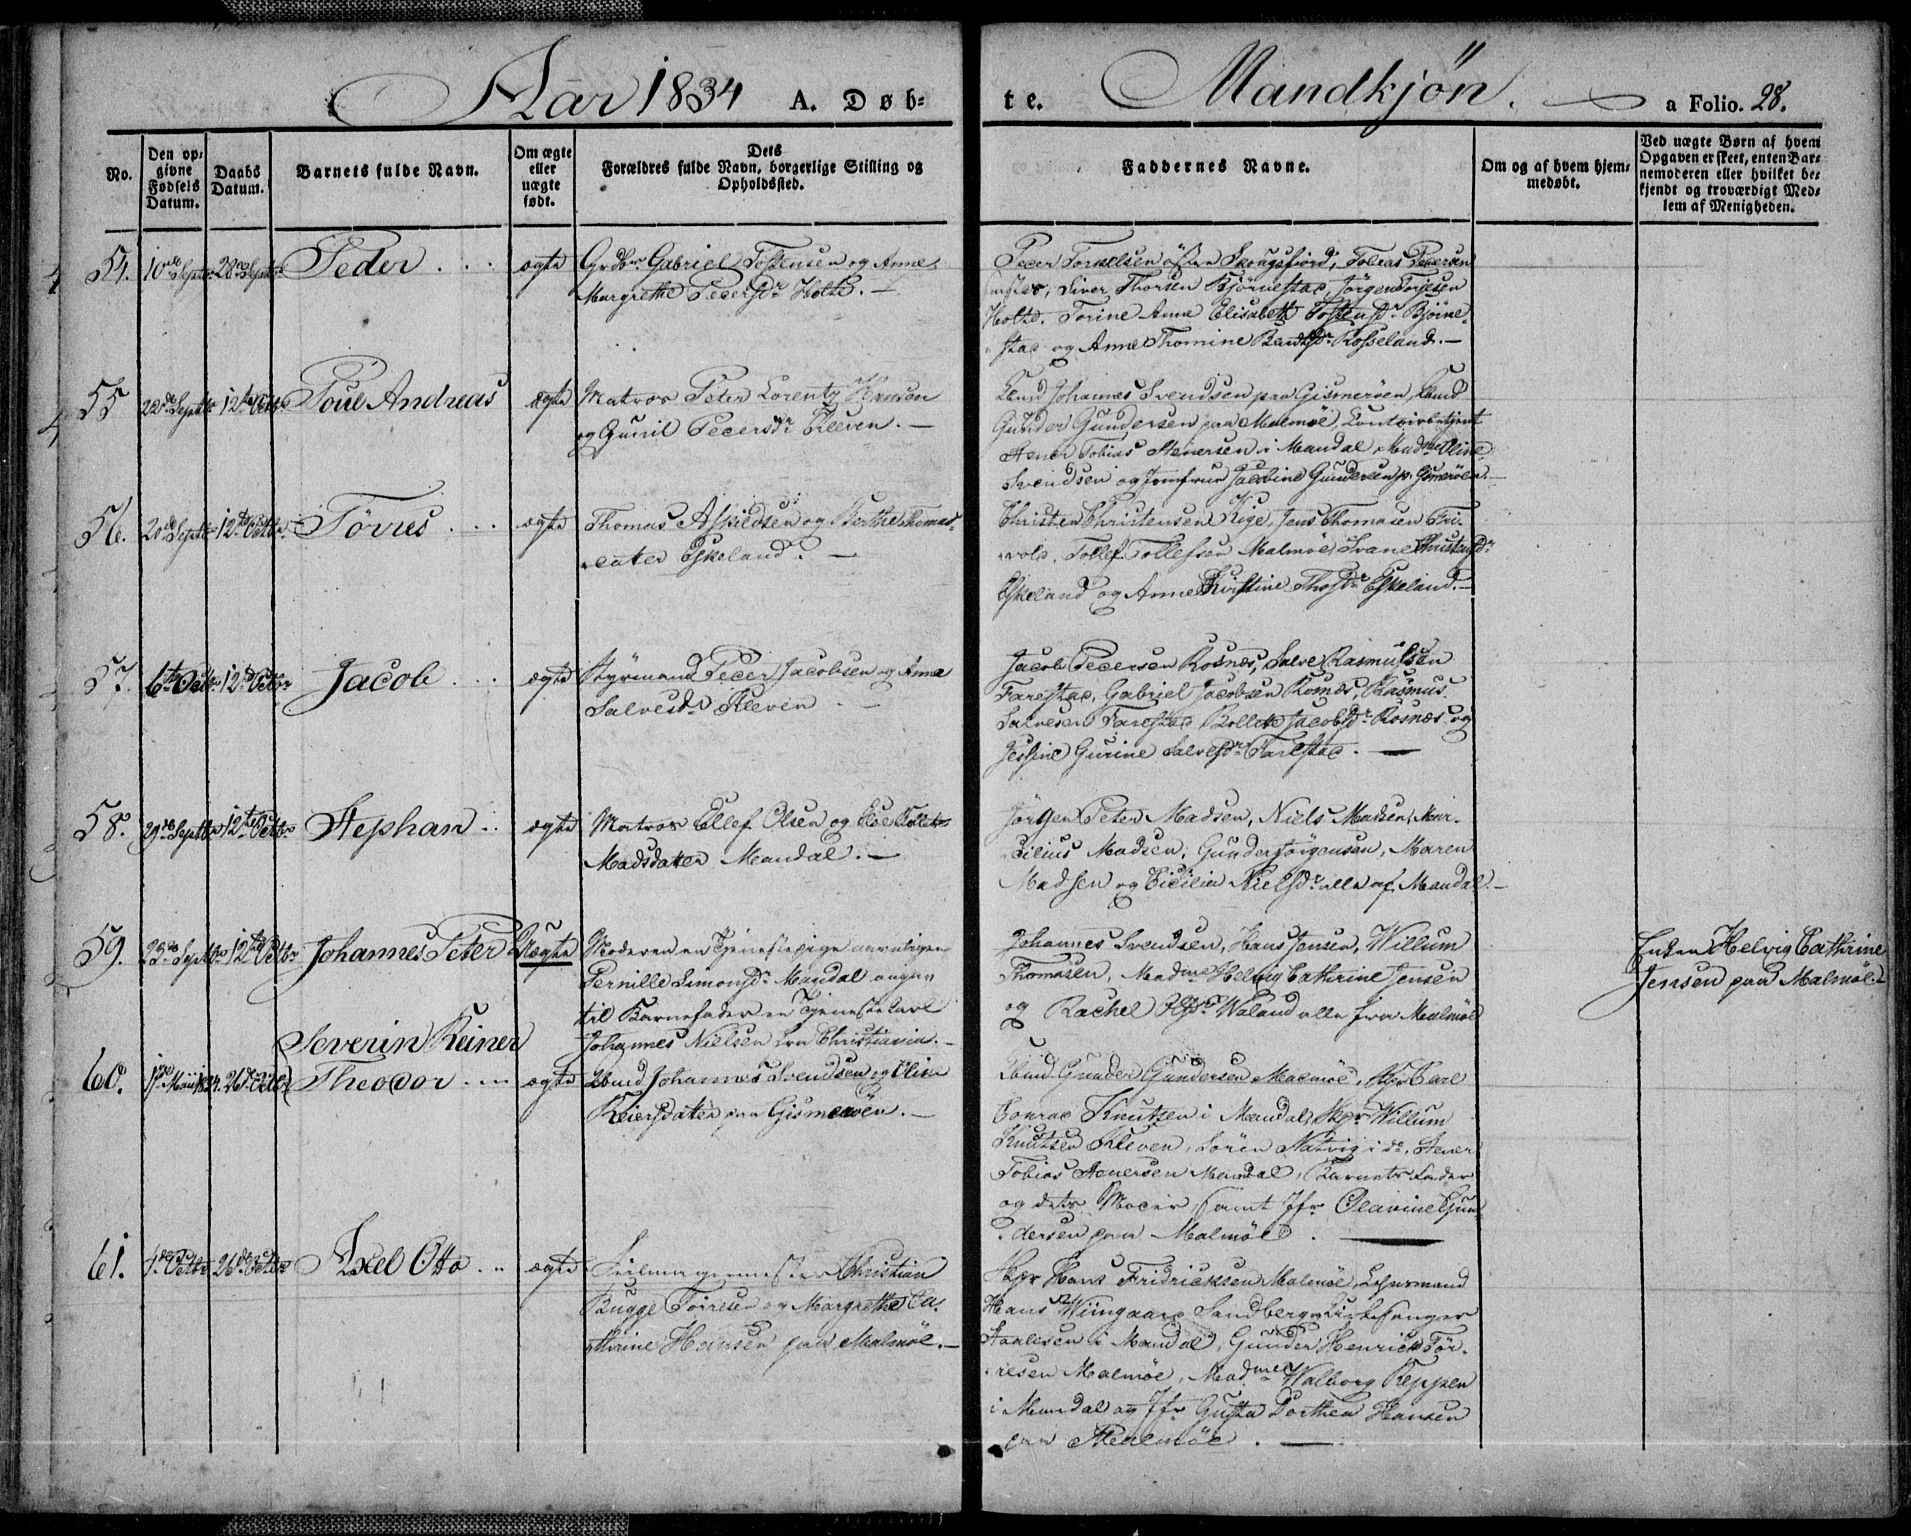 Aar 1834 A. Døb=
te. Mandkjön. a Folio. 28.
No.
Den op=
givne
Fødsels
Datum.
Daabs
Datum.
Barnets fulde Navn.
Om ægte
eller
uægte
født.
Dets
Forældres fulde Navn, borgerlige Stilling og
Opholdssted.
Faddernes Navne.
Om og af hvem hjem=
medøbt.
Ved uægte Børn af hvem
Opgaven er skeet, enten Bar=
nemoderen eller hvilket be=
kjendt og troværdigt Med=
lem af Menigheden.
54. 10de Septbr 28de Septbr Peder ægte
Grdbr Gabriel Tostensen og Anne
Margrethe Pedersdr Holte.
Peder Torkelsen östre Skougsfiord, Tobias Pedersen
Siver Thorsen Björnestad, Jörgen Torjesen
Holte. Torine Anne Elisabeth Tostensdr Björne-
stad og Anne Thomine Berntsdr Rosseland.
55 22de Septbr 12te Octbr Poul Andreas ægte
Matros Peter Lorentz Hansen
og Gunil Pedersdr Kleven.
Johannes Svendsen paa Gismeröen,
Gunder Gundersen paa Malmöe, Contoirbetjent
Stener Tobias Stenersen i Mandal, Madme Oline
Svendsen og Jomfrue Jacobine Gundersen p. Gismeröen.
56. 20de Septbr 12te Octbr. Tövus ægte
Thomas Askildsen og Berthe Thomas-
datter Eskeland.
Christen Christensen Kige, Jens Thomasen Tri-
vold, Tollef Tollefsen Malmöe, Svane Christensdr
Eskeland og Anne Kirstine Thosdr Eskeland.
57. 6te Octbr 12te Octbr Jacob ægte
Styrmand Peder Jacobsen og Anne
Salvesdr Kleven
Jacob Pedersen Rosnæs, Salve Rasmussen
Farestad, Gabriel Jacobsen Rosnæs, Rasmus
Salvesen Farestad Bollette Jacobsdr Rosnæs og
Gurine Salvesdr Farestad.
58. 29de Septbr 12te Octbr Stephan ægte
Matros Ellef Olsen og
Madsdatter Mandal.
Jörgen Peter Madsen, Niels Madsen, Mar-
Madsen, Gunder Jörgensen, Maren
Madsen og Cicilia Nielsdr alle af Mandal.
59. 23de Septbr 12te Octbr Johannes Peter Uægte
Moderen en Tjenestepige navnligen
Pernille Simonsdr Mandal angav
til Barnefader en Tjenestekarl
Johannes Nielsen fra Christiania.
Johannes Svendsen, Hans Jensen, Willum
Thomasen, Madme Helvig Cathrine Jensen
og Rachel Waland alle fra Malmöe
Enken Helvig Cathrine
Jensen paa Malmöe.
60. 17de Maii 1834. 26de Octbr Severin Reiner
Theodor ægte
Johannes Svendsen og Oline
Reiersdatter paa Gismeröen.
Gunder Gundersen Malmöe, Skpr Carl
Conrad Knutzen i Mandal, Skpr Willum
Knutzen Kleven, Sören Natvig i do, Stener
Tobias Stenersen Mandal, Barnets Fader
og dets Moder, samt Jfr Olavine Gun-
dersen paa Malmöe.
61. 4de Octbr 26de Octbr Axel Otto ægte
Seilmagermester Christian
Bugge Törresen og Margrethe Ca-
thrine Hansen paa Malmöe.
Skpr Hans Fridricksen Malmöe, Lehnsmand
Hans Wiingaard Sandberg, Kirkesanger
Staalesen i Mandal, Gunder Henrick Tör-
resen Malmöe, Madme Walborg Keppen
i Mandal og Jfr Gusta Dorthea Hansen
paa Malmöe.